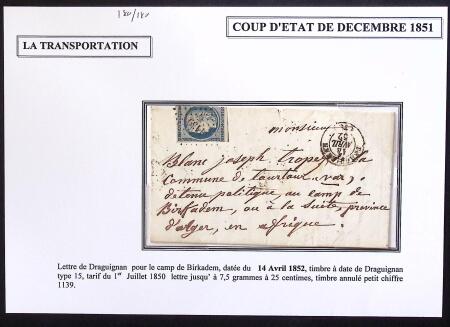 180/180
COUP D'ETAT DE DECEMBRE 1851
LA TRANSPORTATION
monsieur
Blanc joseph tropez, de la
Commune de tourtour (var),
détenu politique au camp de
Birkadem, ou à la suite, province
d'alger, en afrique.
14
AVRIL
52
Lettre de Draguignan pour le camp de Birkadem, datée du 14 Avril 1852, timbre à date de Draguignan
type 15, tarif du 1er Juillet 1850 lettre jusqu' à 7,5 grammes à 25 centimes, timbre annulé petit chiffre
1139.